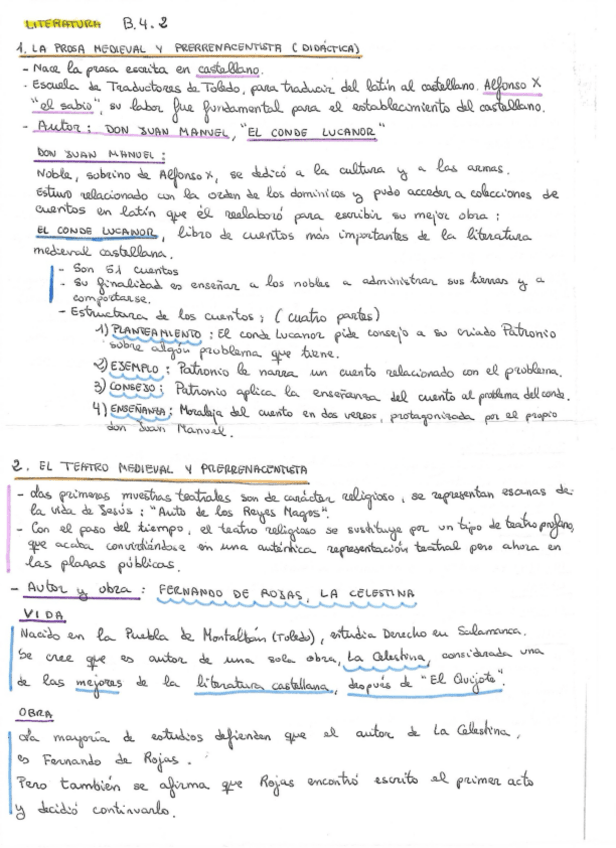 LITERATURA B.4.2
1. LA PROSA MEDIEVAL Y PRERRENACENTISTA (DIDÁCTICA)
- Nace la prosa escrita en castellano.
- Escuela de Traductores de Toledo, para traducir del latín al castellano. Alfonso X
"el sabio", su labor fue fundamental para el establecimiento del castellano.
- Autor: DON JUAN MANUEL, "EL CONDE LUCANOR"
DON JUAN MANUEL:
Noble, sobrino de Alfonso X, se dedicó a la cultura y a las armas.
Estuvo relacionado con la orden de los dominicos y pudo acceder a colecciones de
cuentos en latín que él reelaboró para escribir su mejor obra:
EL CONDE LUCANOR, libro de cuentos más importantes de la literatura
medieval castellana.
- Son 51 cuentos
- Su finalidad es enseñar a los nobles a administrar sus tierras y a
comportarse.
- Estructura de los cuentos: (cuatro partes)
1) PLANTEAMIENTO: El conde Lucanor pide consejo a su criado Patronio
sobre algún problema que tiene.
2) EJEMPLO: Patronio le narra un cuento relacionado con el problema.
3) CONSEJO: Patronio aplica la enseñanza del cuento al problema del conde.
4) ENSEÑANZA: Moraleja del cuento en dos versos, protagonizada por el propio
don Juan Manuel.
2. EL TEATRO MEDIEVAL Y PRERRENACENTISTA
- Las primeras muestras teatrales son de carácter religioso, se representan escenas de
la vida de Jesús: "Auto de los Reyes Magos".
- Con el paso del tiempo, el teatro religioso se sustituye por un tipo de teatro profano,
que acaba convirtiéndose en una auténtica representación teatral pero ahora en
las plazas públicas.
- Autor y obra: FERNANDO DE ROJAS, LA CELESTINA
VIDA
Nacido en la Puebla de Montalbán (Toledo), estudia Derecho en Salamanca.
Se cree que es autor de una sola obra, La Celestina, considerada una
de las mejores de la literatura castellana, después de "El Quijote".
OBRA
La mayoría de estudios defienden que el autor de La Celestina,
es Fernando de Rojas.
Pero también se afirma que Rojas encontró escrito el primer acto
y decidió continuarlo.